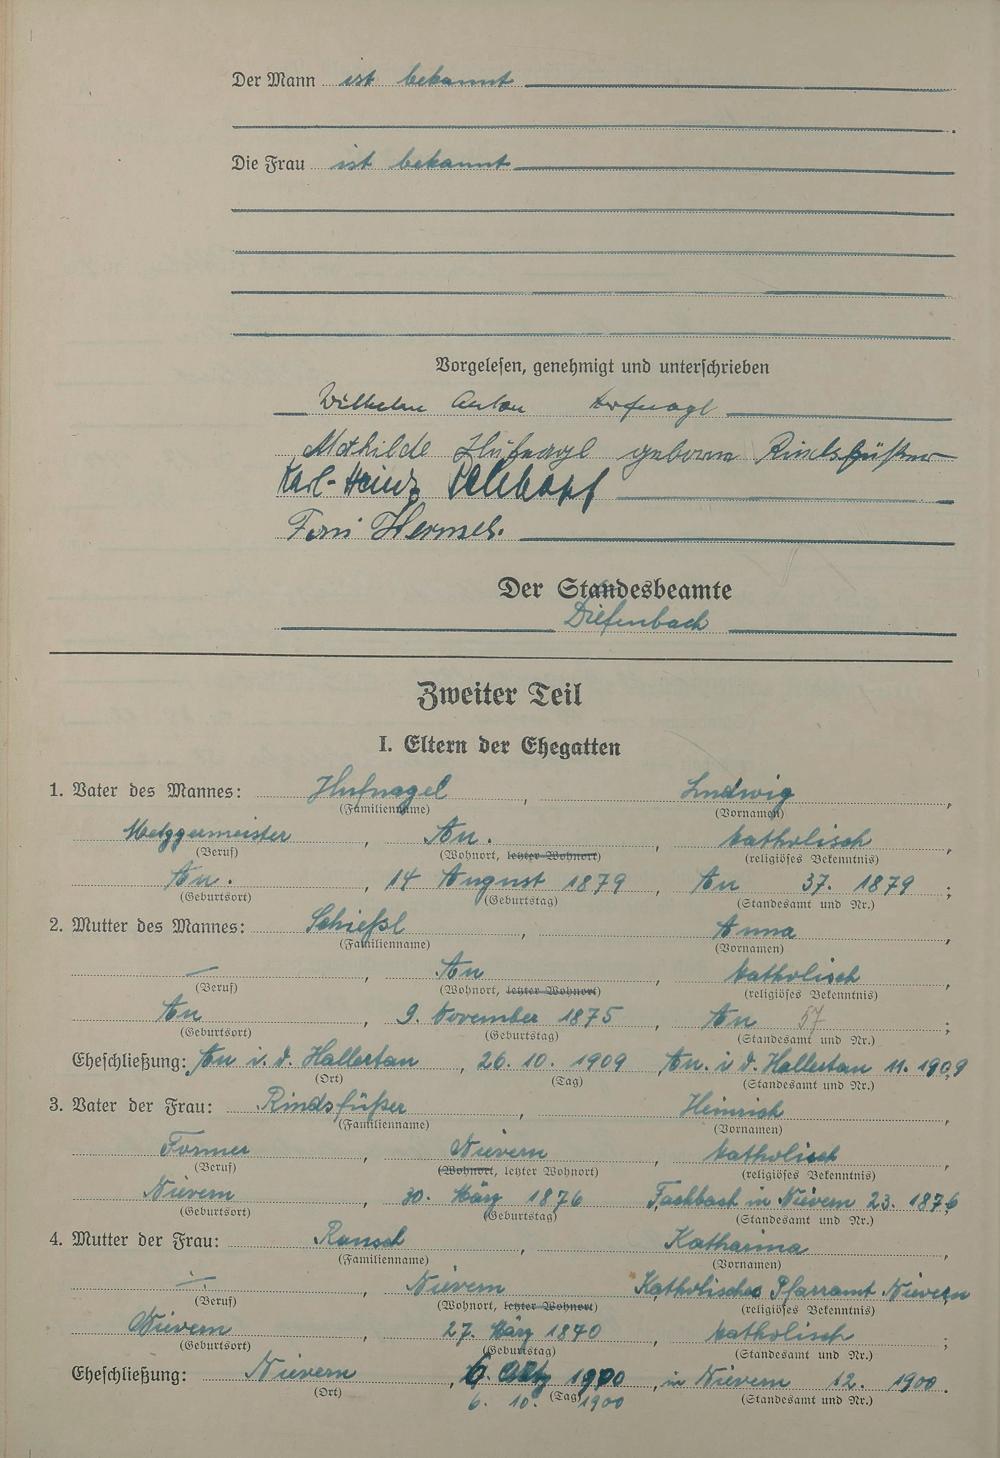 Der Mann ist bekannt
Die Frau ist bekannt
Vorgelesen, genehmigt und unterschrieben
Wilhelm Anton Hufnagl
Mathilde Hufnagl geborne Rindsfüßer
Karl-Heinz
Toni
Der Standesbeamte
Diefenbach
Zweiter Teil
I. Eltern der Ehegatten
1. Vater des Mannes: Hufnagel, Ludwig,
(Familienname) (Vornamen)
Metzgermeister, Au., katholisch,
(Beruf) (Wohnort, letzter Wohnort) (religiöses Bekenntnis)
Au., 14 August 1879, Au 37. 1879;
(Geburtsort) (Geburtstag) (Standesamt und Nr.)
2. Mutter des Mannes: Schießl, Anna,
(Familienname) (Vornamen)
—, Au, katholisch,
(Beruf) (Wohnort, letzter Wohnort) (religiöses Bekenntnis)
Au, 9. November 1875, Au 57;
(Geburtsort) (Geburtstag) (Standesamt und Nr.)
Eheschließung: Au i. d. Hallertau, 26. 10. 1909 Au. i d. Hallertau 11. 1909
(Ort) (Tag) (Standesamt und Nr.)
3. Vater der Frau: Rindsfüßer, Heinrich,
(Familienname) (Vornamen)
Former, Nievern, katholisch,
(Beruf) (Wohnort, letzter Wohnort) (religiöses Bekenntnis)
Nievern, 30. März 1876 Fachbach in Nievern 23. 1876
(Geburtsort) (Geburtstag) (Standesamt und Nr.)
4. Mutter der Frau: Katharina,
(Familienname) (Vornamen)
—, Nievern Katholisches Pfarramt Nievern
(Beruf) (Wohnort, letzter Wohnort) (religiöses Bekenntnis)
Nievern, 27. März 1870, katholisch;
(Geburtsort) (Geburtstag) (Standesamt und Nr.)
Eheschließung: Nievern, 6. 1900, in Nievern 12. 1900.
(Ort) (Tag) (Standesamt und Nr.)
6. 10. 1900